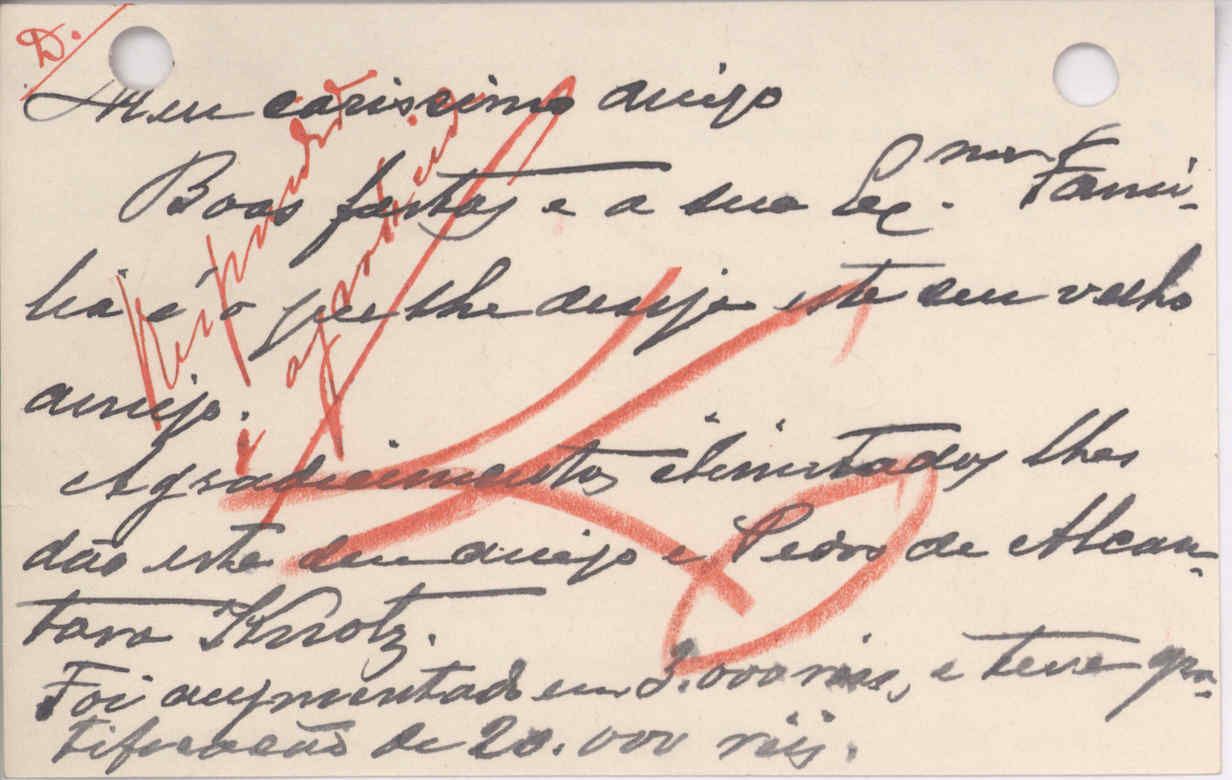 D.
Meu carissimo amigo
Boas festas e a sua Ex.ma Fami-
lia é o que lhe deseja este seu velho
amigo.
Agradecimentos illimitados lhes
dão este seu amigo e Pedro de Alcan-
tara Knotz.
Foi augmentado em 3.000 reis, e teve gra-
tificação de 20.000 réis.
Respondido